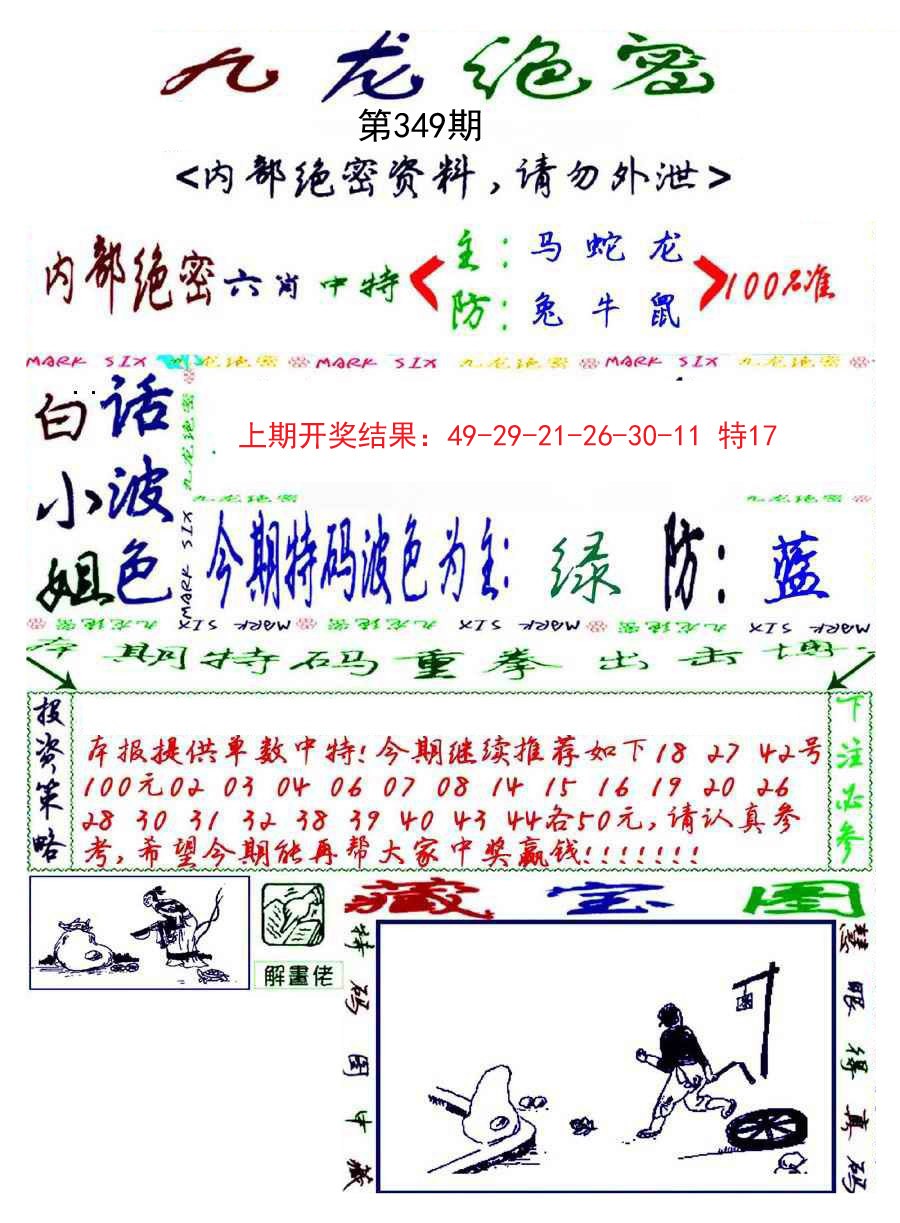 九龙绝密
第349期
<内部绝密资料,请勿外泄>
内部绝密六肖中特
主:马蛇龙
防:兔牛鼠
100%准
MARK SIX 九龙绝密 MARK SIX 九龙绝密 MARK SIX 九龙绝密
白话
小波
姐色
九龙绝密
MARK SIX
上期开奖结果：49-29-21-26-30-11 特17
九龙绝密
九龙绝密
今期特码波色为主:绿 防:蓝
九龙绝密 MARK SIX 九龙绝密 MARK SIX 九龙绝密 MARK SIX
本期特码重拳出击博:
投资策略
本报提供单数中特!今期继续推荐如下18 27 42号
100元02 03 04 06 07 08 14 15 16 19 20 26
28 30 31 32 38 39 40 43 44各50元,请认真参
考,希望今期能再帮大家中奖赢钱!!!!!!!
下注必参
解畫佬
藏宝图
特码图中藏
慧眼得真码